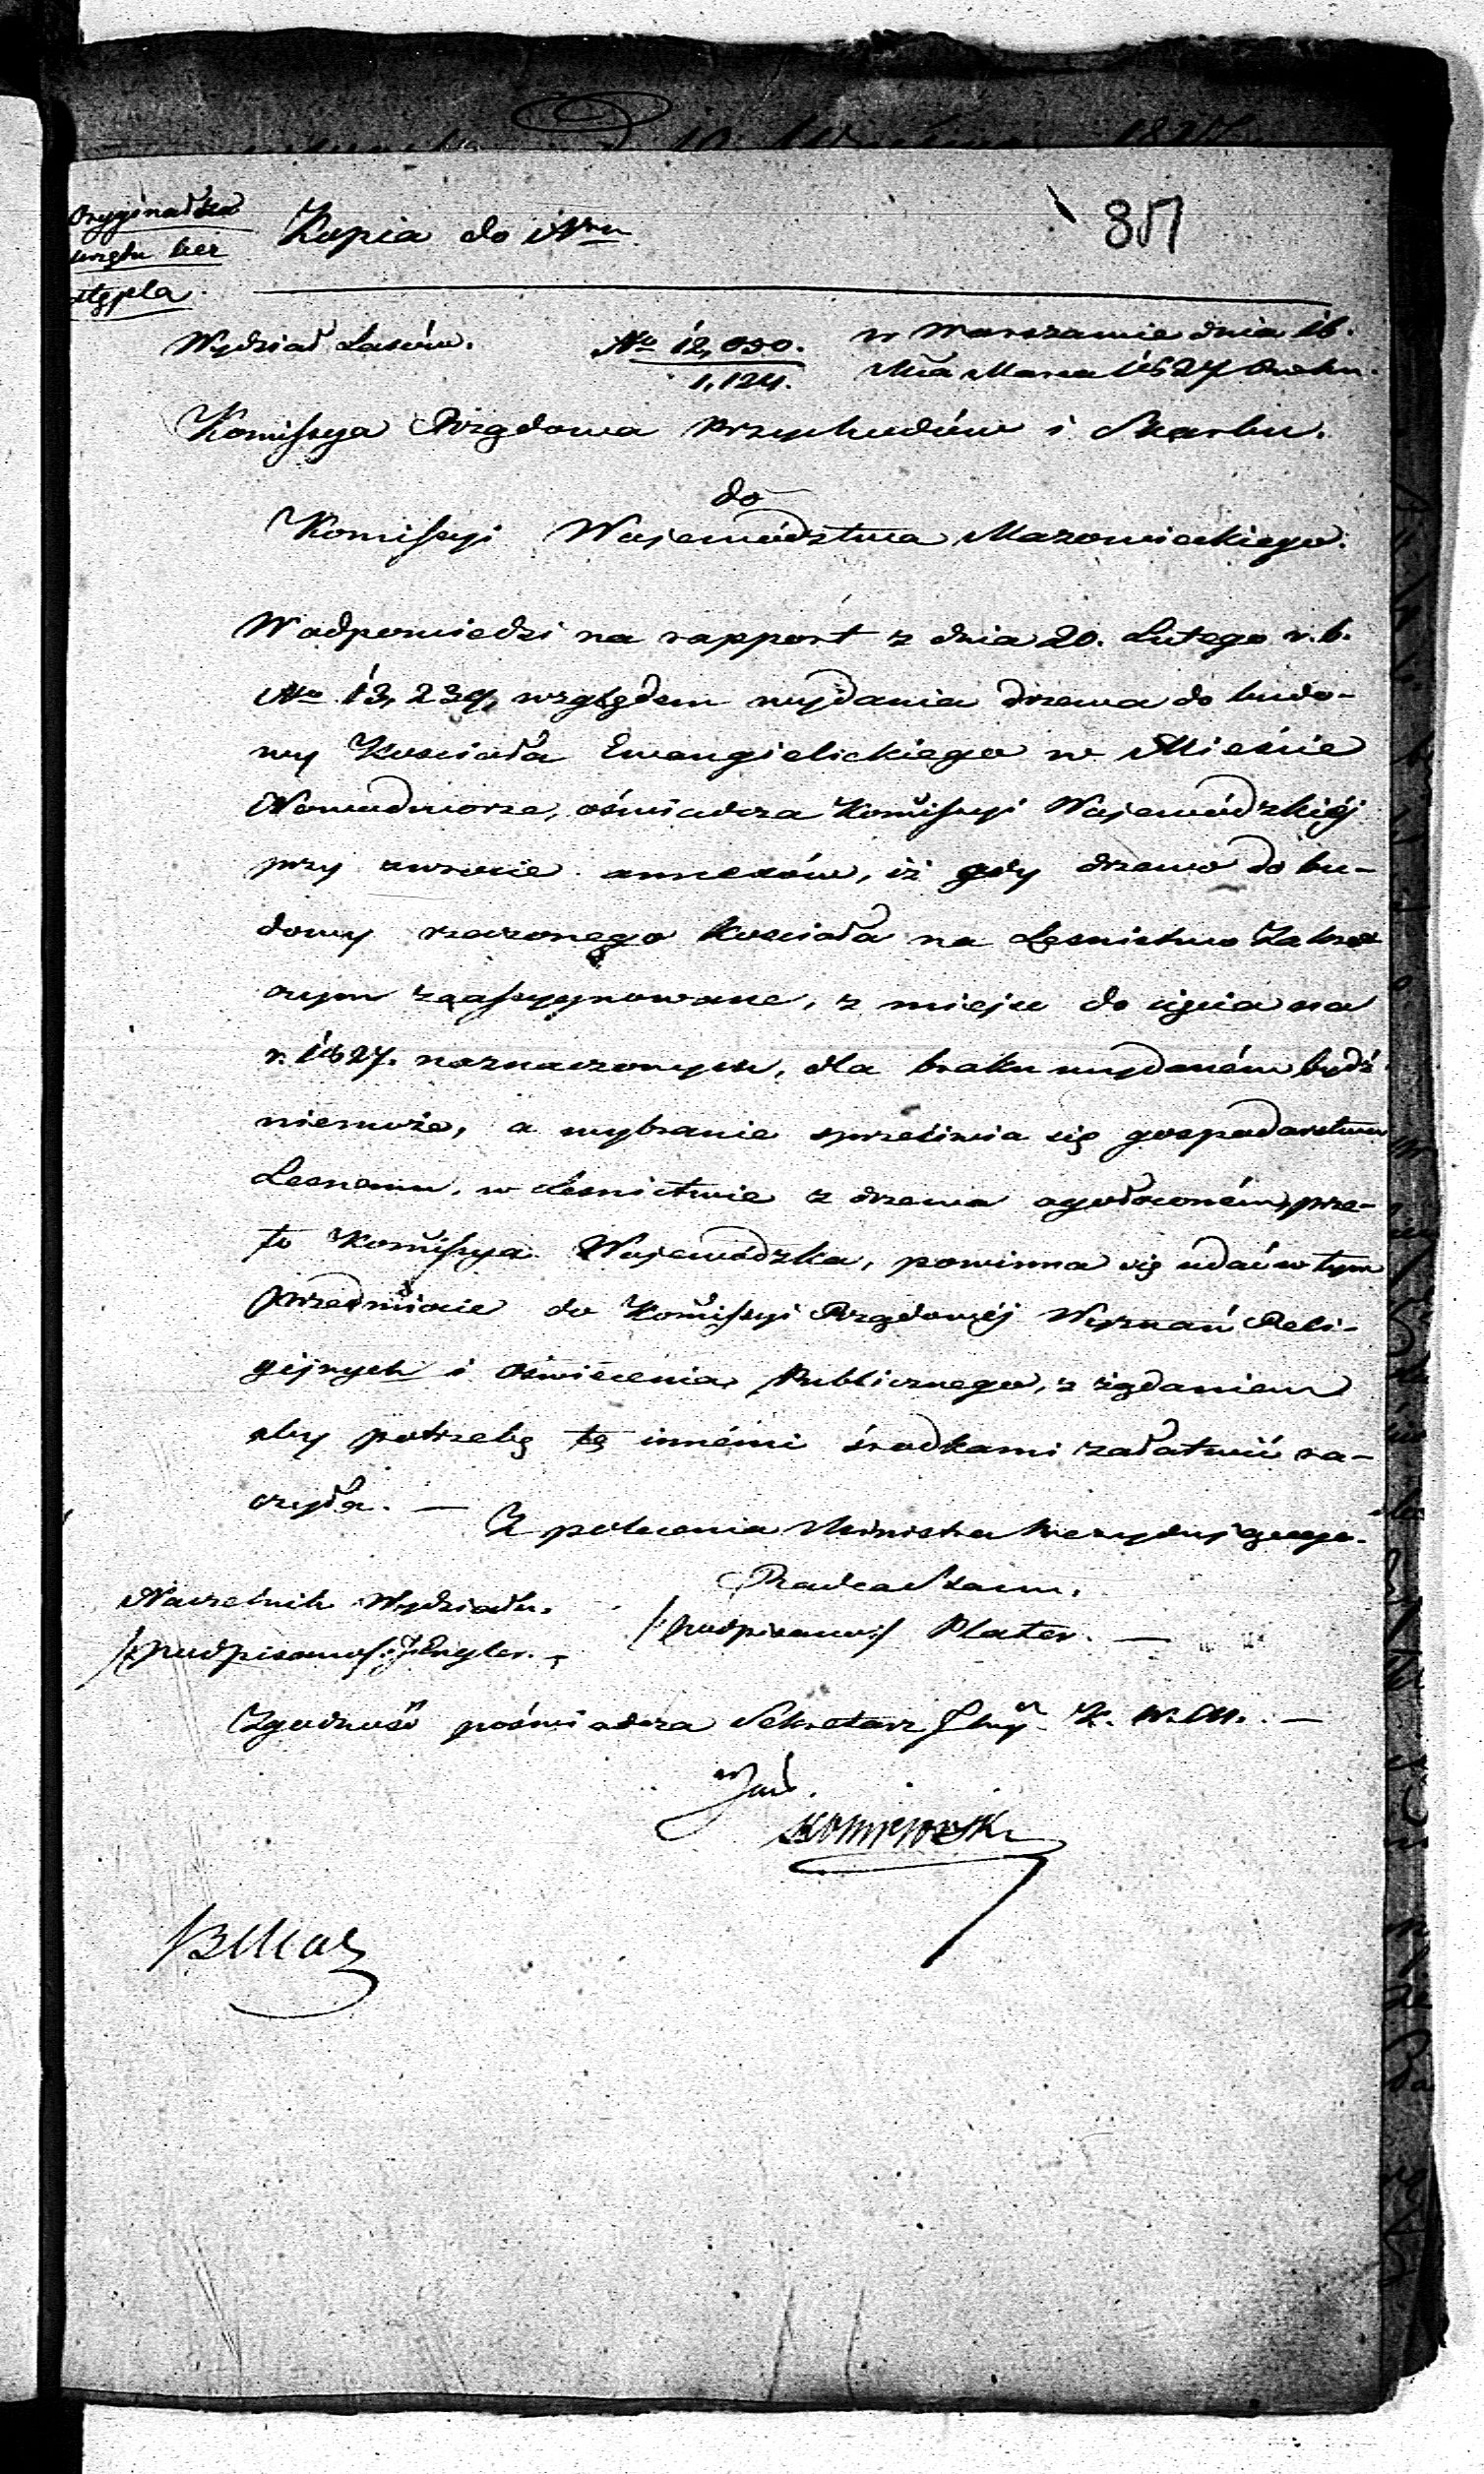 Oryginał na
urzędu bez
stępla.
Kopia do Nru
Wydział Lasów.
No 12,090.
1,124.
w Warszawie dnia 16.
Mca Marca 1827 Roku.
Kommissya Rządowa Przychodów i Skarbu.
do
Kommissyi Wojewodztwa Mazowieckiego.
W odpowiedzi na rapport z dnia 20. Lutego r. b.
No 13,239, względem wydania drzewa do budo-
wy Koscioła Ewangielickiego w Mieście
Nowodworze, oświadcza Kommissyi Wojewódzkiéj
przy zwrocie annexów, iż gdy drzewo do bu-
dowy rzeczonego Koscioła na Lesnictwo Zakro-
czym zaassygnowane, z miejsc do cięcia na
r. 1827. naznaczonych, dla braku wydaném bydź
niemoże, a wybranie sprzeciwia się gospodarstwu
Lesnemu, w Lesnictwie z drzewa ogołoconém, prze-
to Kommissya Wojewódzka, powinna się udać w tym
przedmiocie do Kommissyi Rządowéj Wyznań Reli-
gijnych i Oświecenia Publicznego, z żądaniem
aby potrzebę tę innémi środkami załatwić ra-
czyła. —
Z polecenia Ministra Prezydującego.
Radca Stanu,
/:podpisano:/ Plater. —
Naczelnik Wydziału.
/:podpisano:/ Engler. —
Zgodność poświadcza Sekretarz K. W. M. —
B Maz